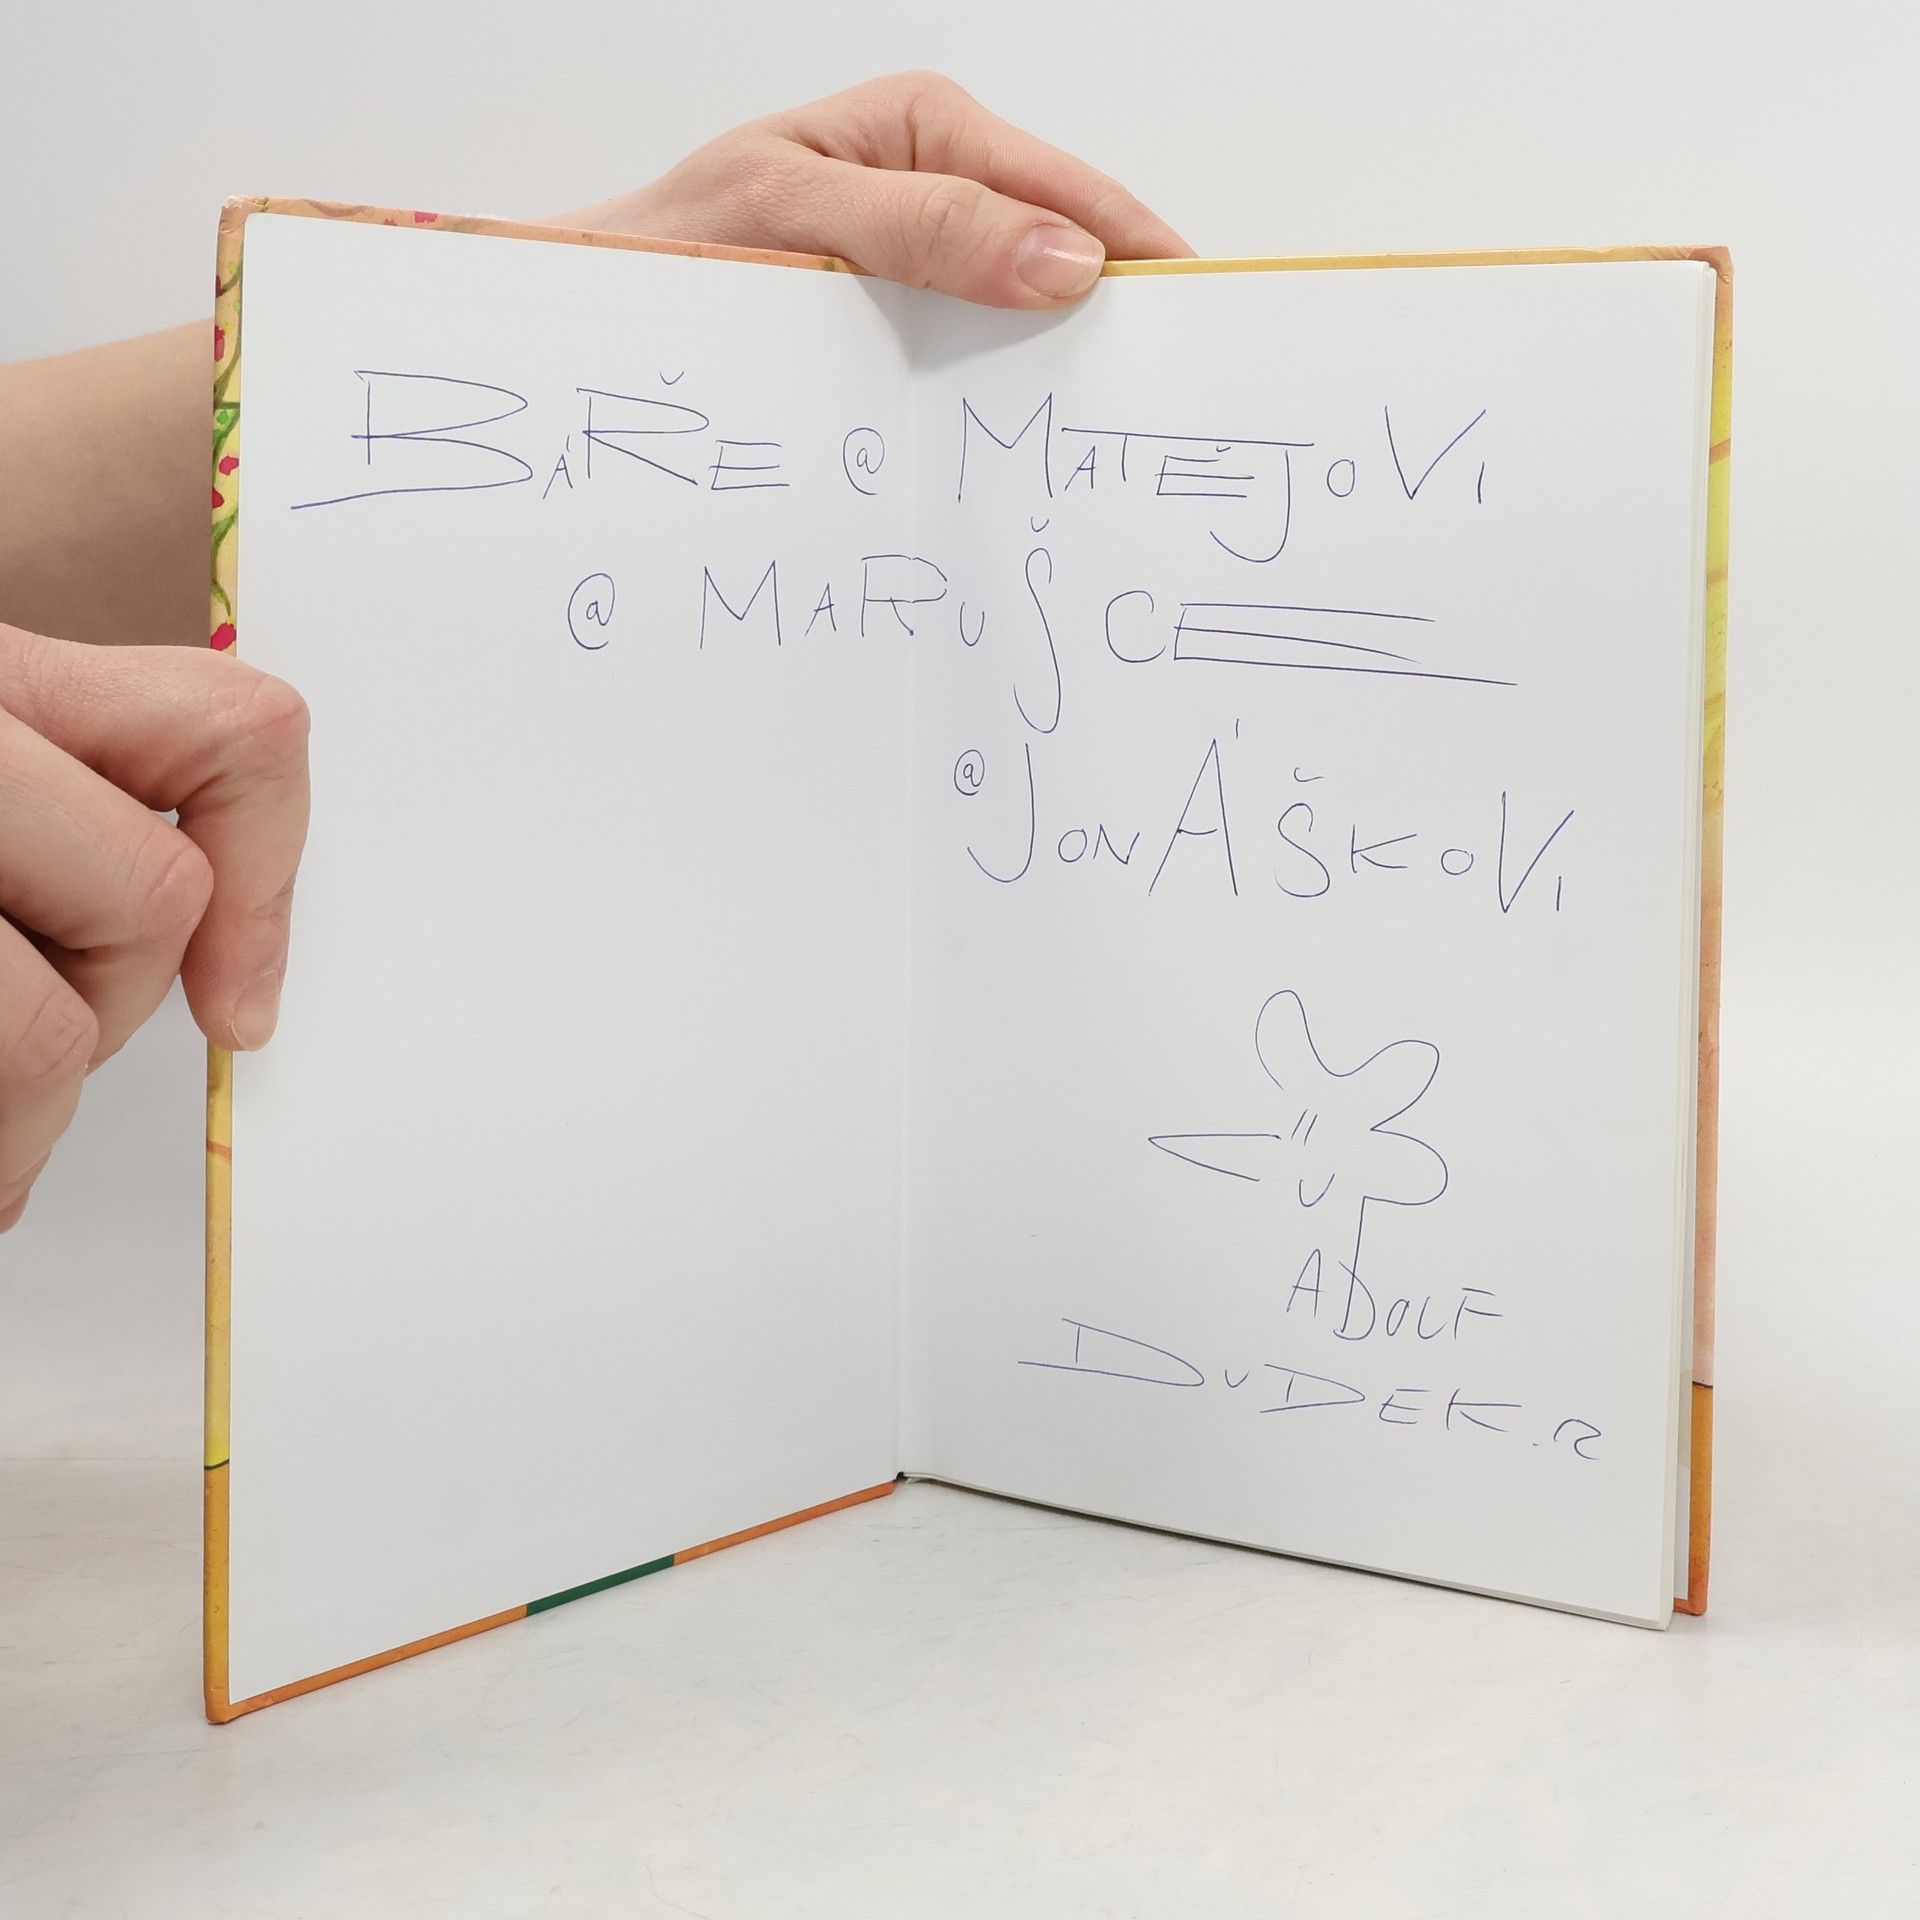 BÁŘE @ MATĚJOVI
@ MARUŠCE
@ JONÁŠKOVI
ADOLF
DUDEK